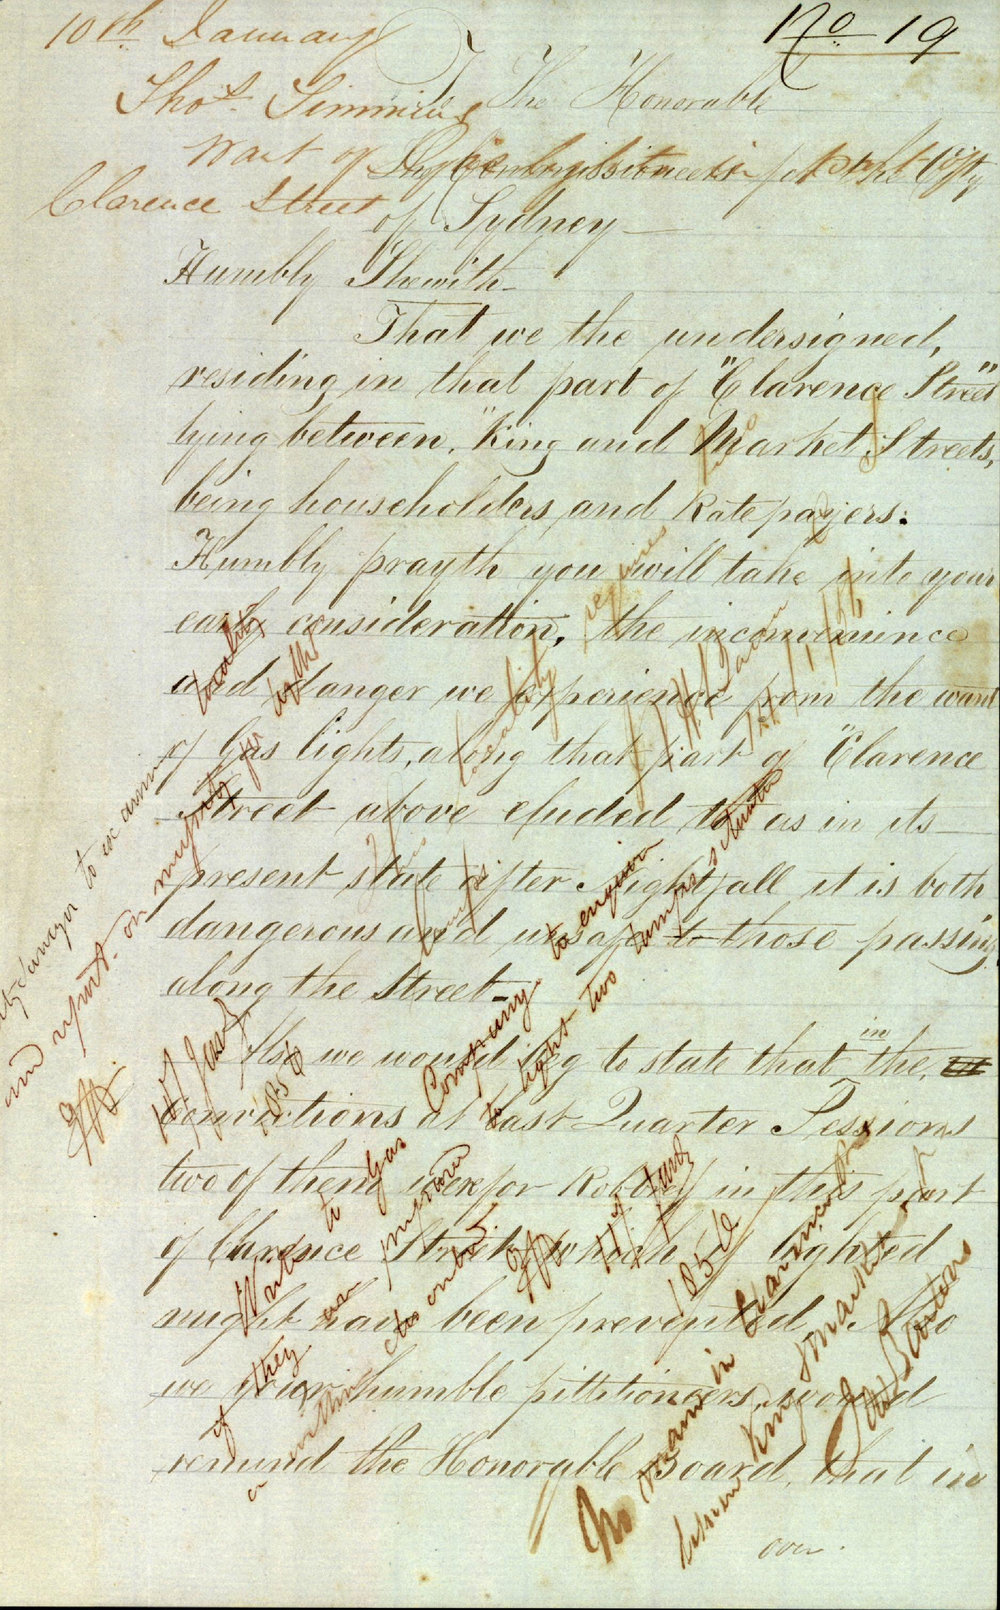 No 19
10th January
Thos Simmins
Want of
Clarence Street
To The Honorable
The Commissioners for the City
of Sydney
Humbly Shewith
That we the undersigned,
residing in that part of "Clarence Street"
lying between, "King and Market Streets,
being householders and Rate payers:
Humbly prayth you will take into your
early consideration, the inconvenince
and danger we experience from the want
of Gas lights, along that part of "Clarence
Street above eluded to as in its
present state after Nightfall it is both
dangerous and unsafe to those passing
along the Street
Also we would beg to state that in the
Convictions at last Quarter Sessions
two of them were for Robbery in this part
of Clarence Street which if lighted
might have been prevented. Also
we your humble pittitioners, would
remind the Honorable Board, that in
over
City Surveyor to examine
and report on necessity for
locality
11 Jany
1856
This locality requires
two
lamps
14/1/56
Write to Gas Company to enquire
if they are prepared to light two lamps
11 Jany
1856
No main in Clarence St
between King & Market St